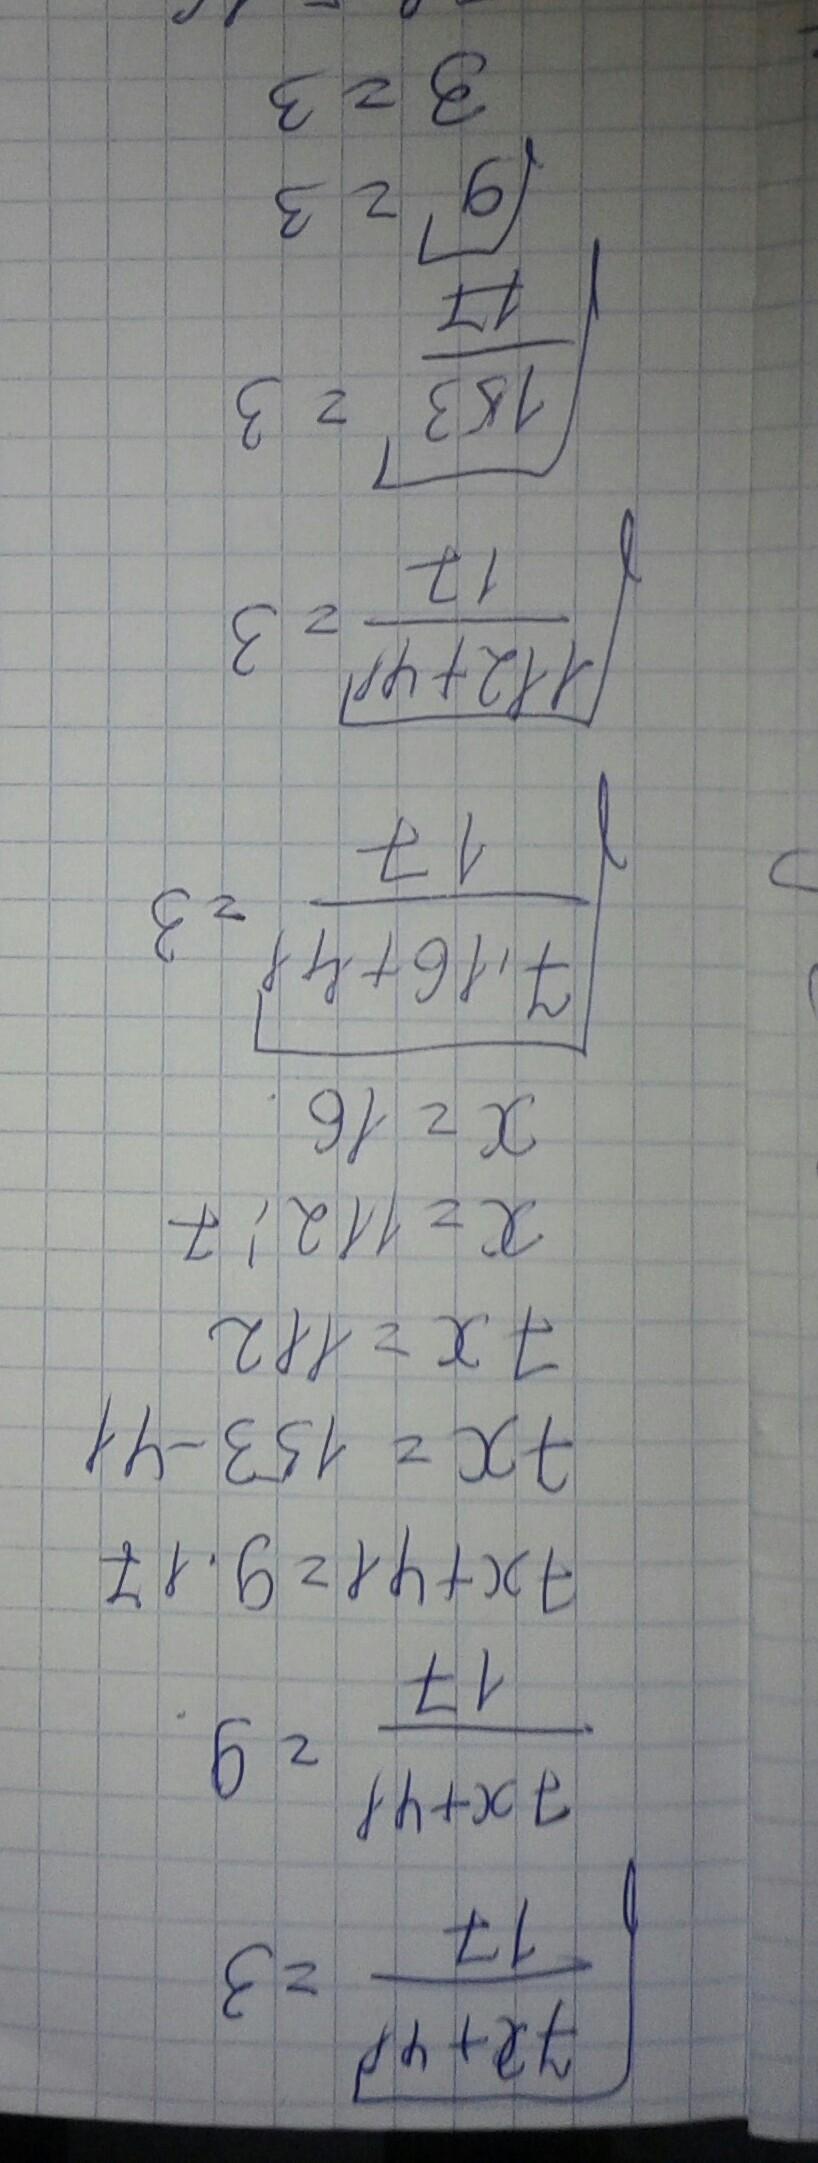 √((7x+41)/17) = 3
(7x+41)/17 = 9
7x+41=9·17
7x = 153-41
7x = 112
x = 112:7
x = 16
√((7·16+41)/17) = 3
√((112+41)/17) = 3
√(153/17) = 3
√9 = 3
3 = 3